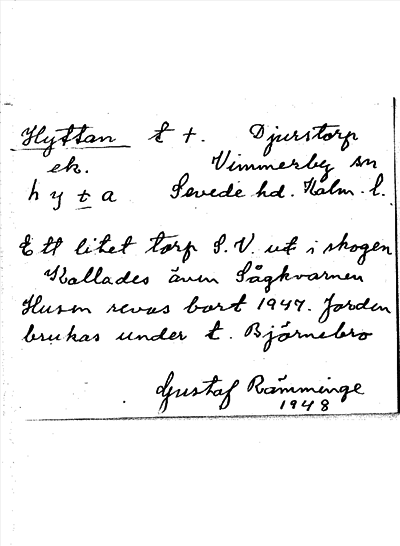 Hyttan t +. Djurstorp
ek. Vimmerby sn
h y t a Sevede hd. Kalm. l.
Ett litet torp S.V. ut i skogen
Kallades även Sågkvarnen
Husen revos bort 1947. Jorden
brukas under t. Björnebro
Gustaf Rämminge
1948